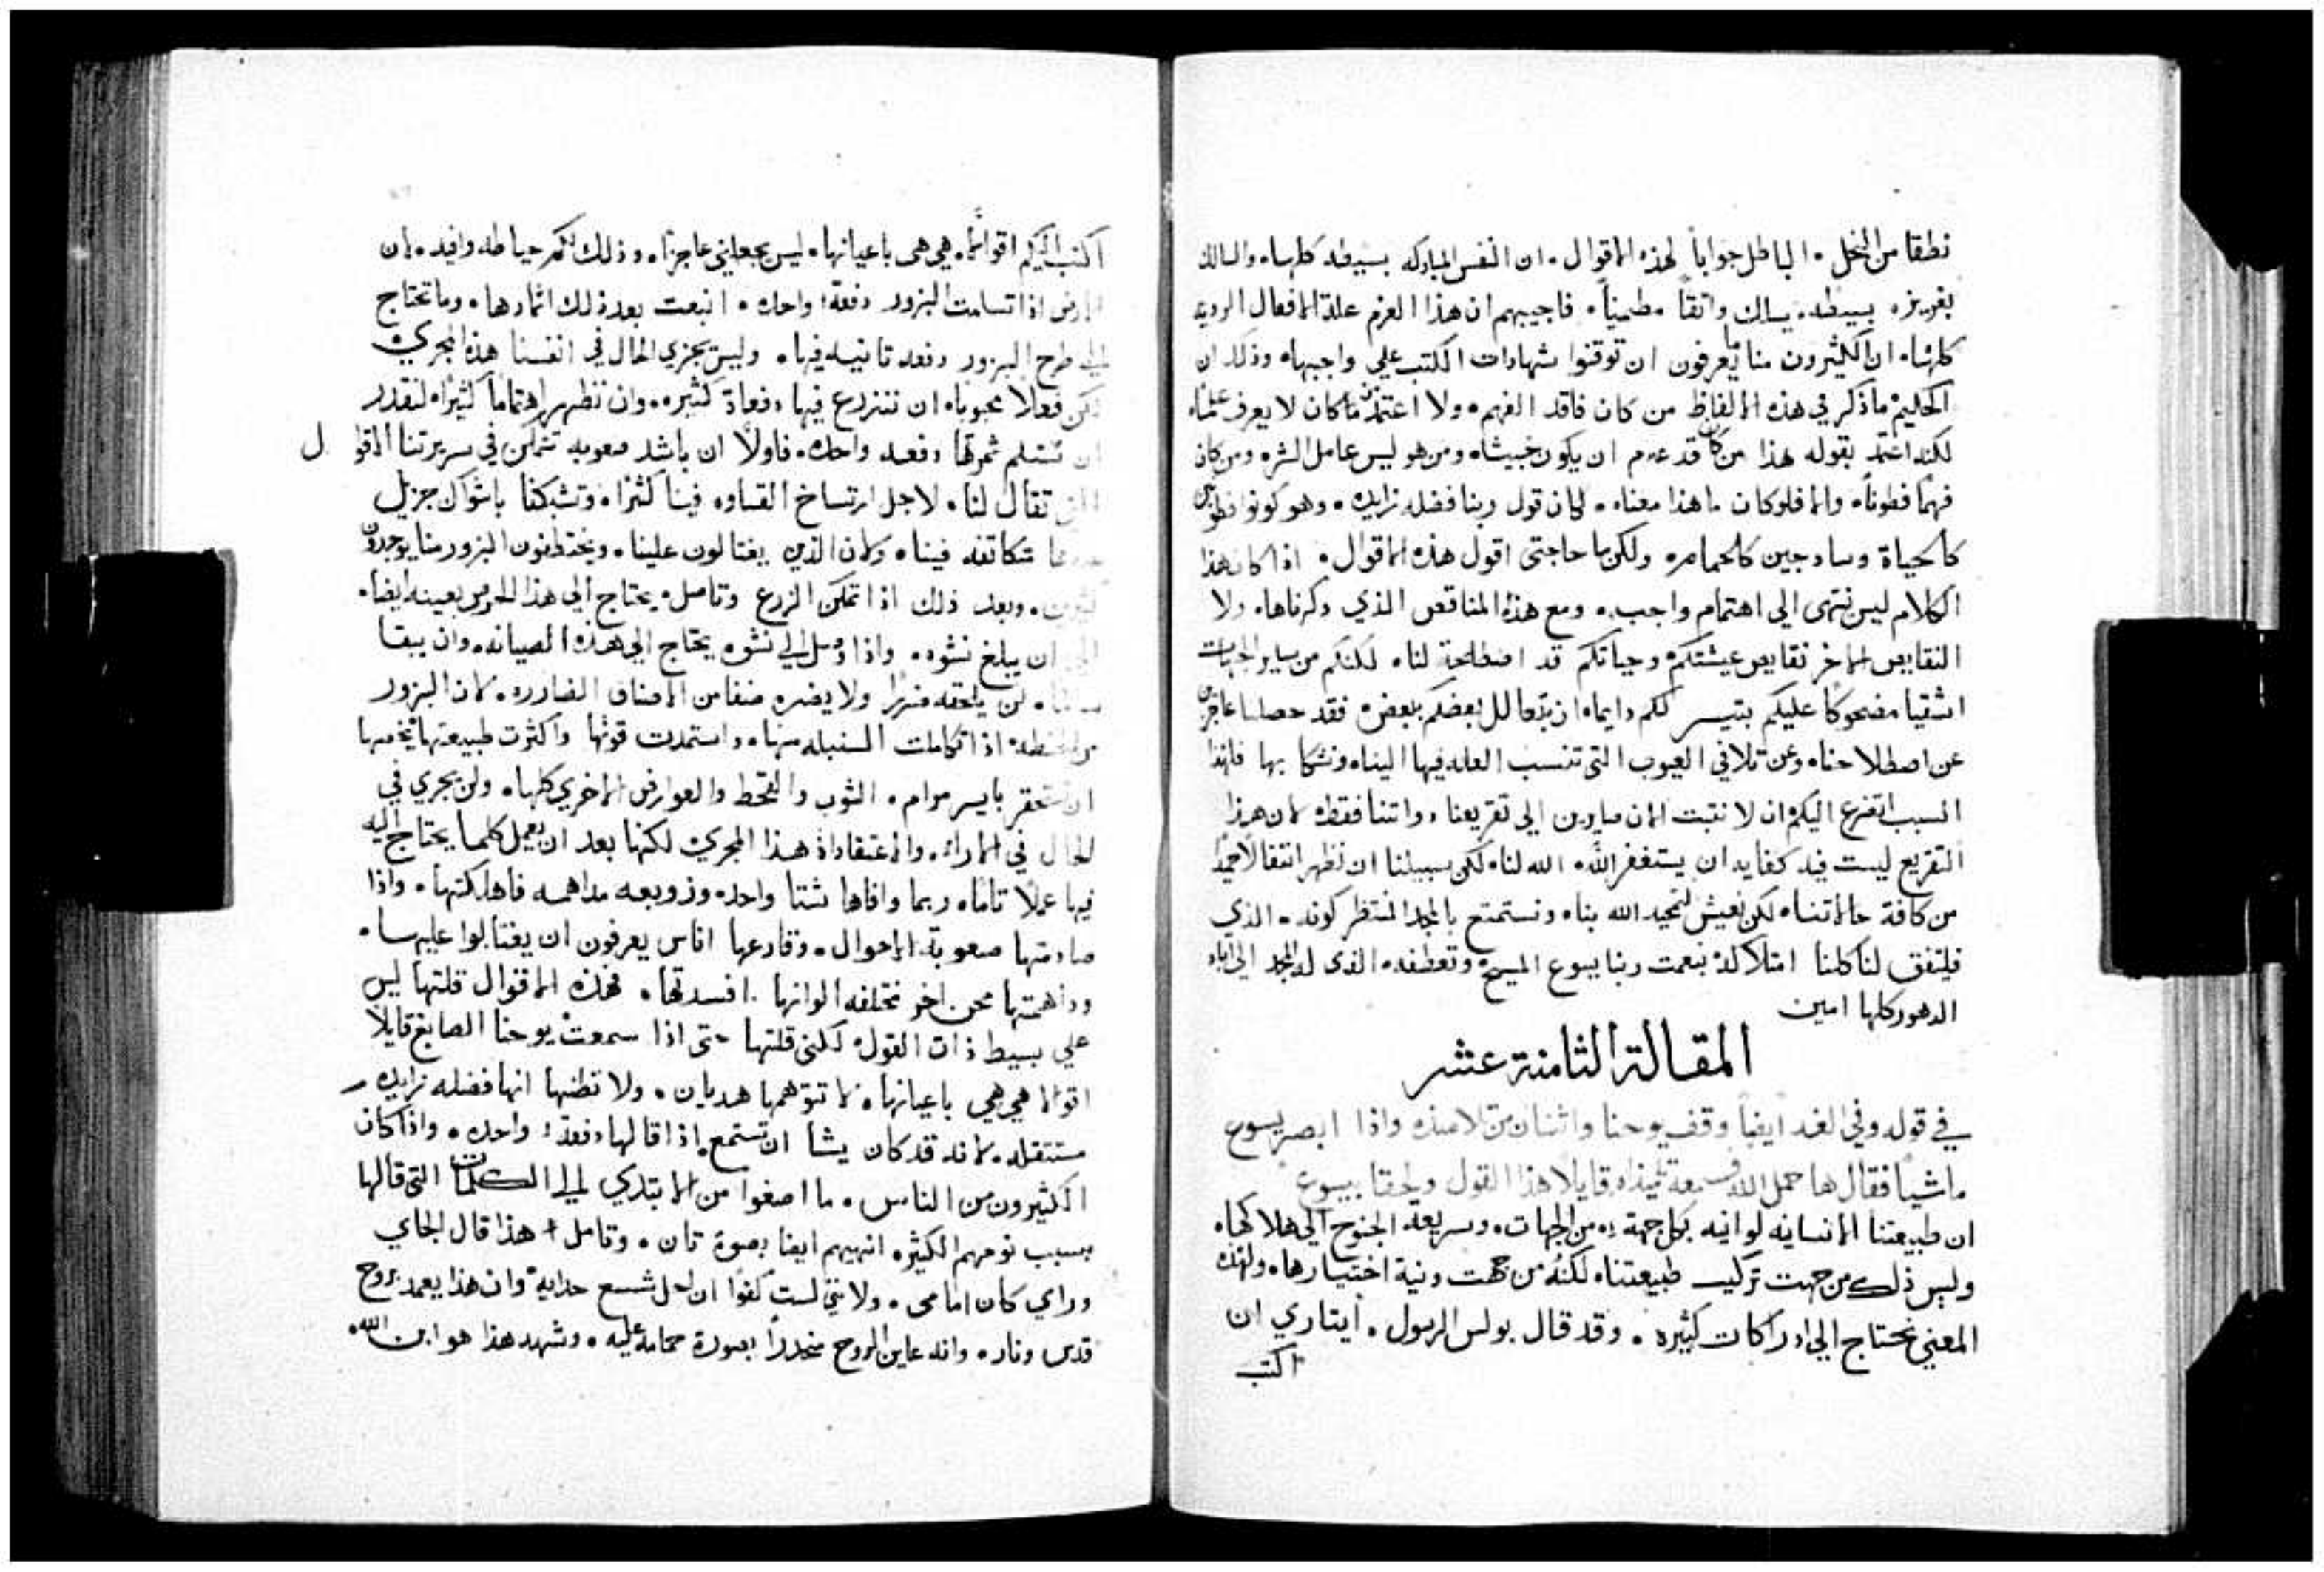 نطقا من النحل. الباطل جواباً لهذه الاقوال. ان النفس المباركه بسيطه كلها. والسالك
بغريزه بسيطه. يسلك واثقاً مطمياً. فاجيبهم ان هذا العزم علة الافعال الرديه
كلها. ان الكثيرون منا ما يعرفون ان توقنوا شهادات الكتب علي واجبها. وذلك ان
الحليم ما ذكر في هذه الالفاظ من كان فاقد الفهم. ولا اعتمد من ما كان لا يعرف علما.
لكنه اعتمد بقوله هذا من كان قد عدم ان يكون خبيثا. ومن هو ليس عامل الشر. ومن كان
فهما فطوناً. والا فلو كان ما هذا معناه. لكان قول ربنا فضله زايده. وهو كونوا فطونين
كالحياة وسادجين كالحمامه. ولكن ما حاجتي اقول هذه الاقوال. اذا كان هذا
الكلام ليس تنتهى الى اهتمام واجب. ومع هذه المناقص الذي دكرناها. ولا
النقايص الاخر نقايص عيشتكم وحياتكم قد اصطلحة لنا. لكنكم من ساير الجهات
اشقيا مضحوكاً عليكم بتيسر لكم دايما. ان بعضكم بعض. فقد حصلنا عاجزين
عن اصطلاحنا. وعن تلافي العيوب التي تنسب العله فيها الينا. ونشكا بها فلهذا
السبب اتضرع اليكم ان لا نثبت الان صايرين الي تقريعنا. واتنا فقط. لان هذا
التقريع ليست فيه كفايه ان يستغفر الله. الله لنا. لكن سبيلنا ان نظهر انتقالا حميدا
من كافة حالاتنا. لكن نعيش لتمجيد الله بنا. ونستمتع بالمجد المنتظر كونه. الذي
فليتفق لنا كلنا امتلاكه بنعمت ربنا يسوع المسيح وتعطفه. الذى له المجد الى اباد
الدهور كلها امين
المقالة الثامنة عشر
في قوله وفي الغد ايضاً وقف يوحنا واثنان من تلاميذه واذا ابصر يسوع
ماشياً فقال ها حمل الله فسمعه تلميذاه قايلا هذا القول ولحقا بيسوع
ان طبيعتنا الانسانيه لوانيه بكل جهة من الجهات. وسريعة الجنوح الي هلاكها.
وليس ذلك من جهت تركيب طبيعتنا. لكنه من جهت ونية اختيارها. ولهذا
المعني نحتاج الي ادراكات كثيره. وقد قال بولس الرسول. ايتاري ان
اكتب
اكتب اليكم اقوالا. هي هى باعيانها. ليس يجعلني عاجزا. وذلك لكم حياطه وافيه. لان
الارض اذا تسلمت البزور دفعة واحده. انبعت بعد ذلك اثمارها. وما تحتاج
الي طرح البزور دفعه ثانيه فيها. وليس يجزي الحال في انفسنا هذه المجري
لكن فعلا محبوبا. ان نزرع فيها دفعاة كثيره. وان نظهر اهتماماً كثيرا. لنقدر
ان نستلم ثمرتها دفعه واحده. فاولا ان باشد صعوبه تتمكن في سريرتنا الاقوال
التي تقال لنا. لاجل ارتساخ القساوه فينا كثيرا. وتشبكنا باشواك جزيل
عددها متكاثفه فينا. ولان الذين يغتالون علينا. ويختطفون البزور منا يوجدون
كثيرون. وبعد ذلك اذا تمكن الزرع وتاصل. يحتاج الي هذا الحرص بعينه ايضا.
الي ان يبلغ نشوه. واذا وصل الي نشوه يحتاج الي هذه الصيانه. وان يبقا
سالما. لن يلحقه ضررا ولا يضره صنفا من الاصناف الضارره. لان البزور
من الحنطه اذا تكاملت السنبله منها. واستمدت قوتها واكثرت طبيعتها
ان تستحقر بايسر مرام. الثوب والقحط والعوارض الاخري كلها. ولن يجري في
الحال في الاراء. والاعتقاداة هذا المجري لكنها بعد ان يعمل كلما يحتاج اليه
فيها عملا تاما. ربما وافاها شتا واحد. وزوبعه مداهمه فاهلكتها. واذا
صادمتها صعوبة الاحوال. وقارعها اناس يعرفون ان يغتالوا عليها.
وداهمتها محن اخر مختلفه الوانها. افسدتها. فهذه الاقوال قلتها ليس
علي بسيط ذات القول. لكنني قلتها حتى اذا سمعت يوحنا الصابغ قايلا
اقوالا هي هي باعيانها. لا تتوهمها هديان. ولا تظنها انها فضله زايده
مستثقله. لانه قد كان يشا ان تستمع اذا قالها دفعة واحده. واذا كان
الكثيرون من الناس. ما اصغوا من الابتدي الي الكلمات التى قالها
بسبب نومهم الكثير. انبههم ايضا بصوة ثان. وتامل هذا قال الجاي
وراي كان امامى. ولانني لست كفوا ان احل شسع حدايه وان هذا يعمد بروح
قدس ونار. وانه عاين الروح منحدراً بصورة حمامة عليه. وشهد هذا هو ابن الله.